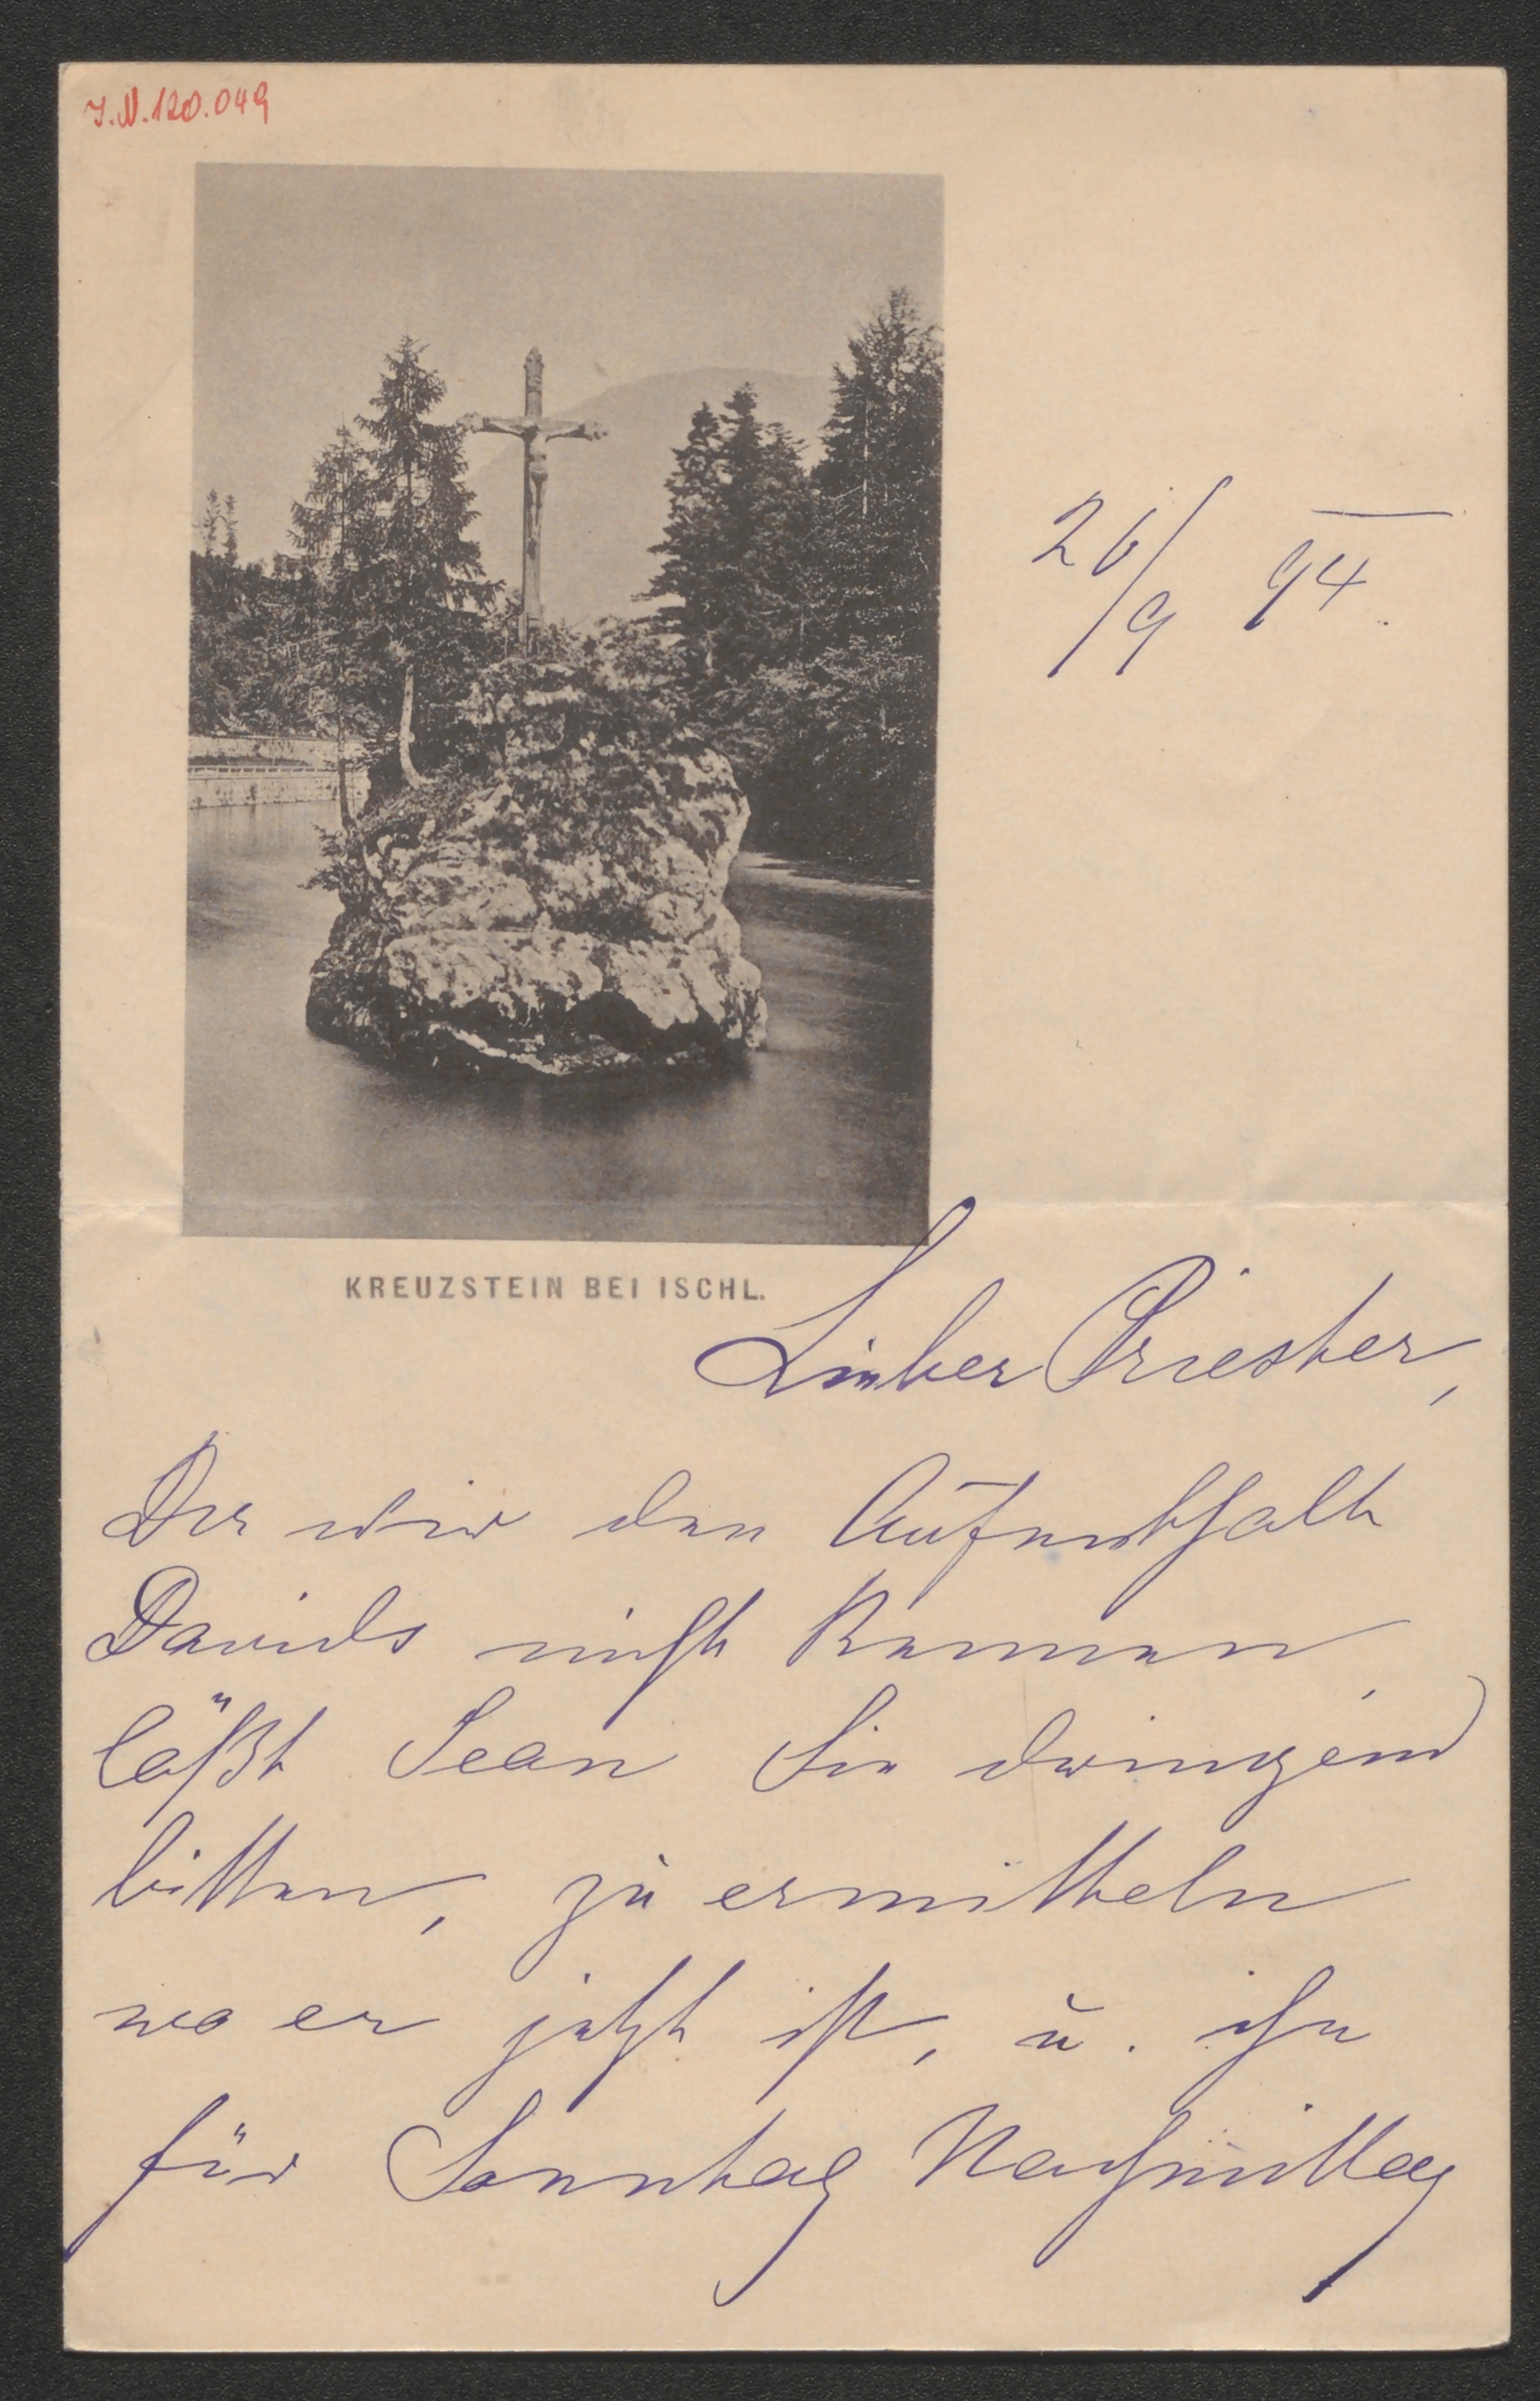 I.N.120.049
26/9 94.
KREUZSTEIN BEI ISCHL.
Lieber Priester,
Da wir den Aufenthalt
Davids nicht kennen,
läßt Jean Sie dringend
bitten, zu ermitteln
wo er jetzt ist, u. ihn
für Sonntag Nachmittag